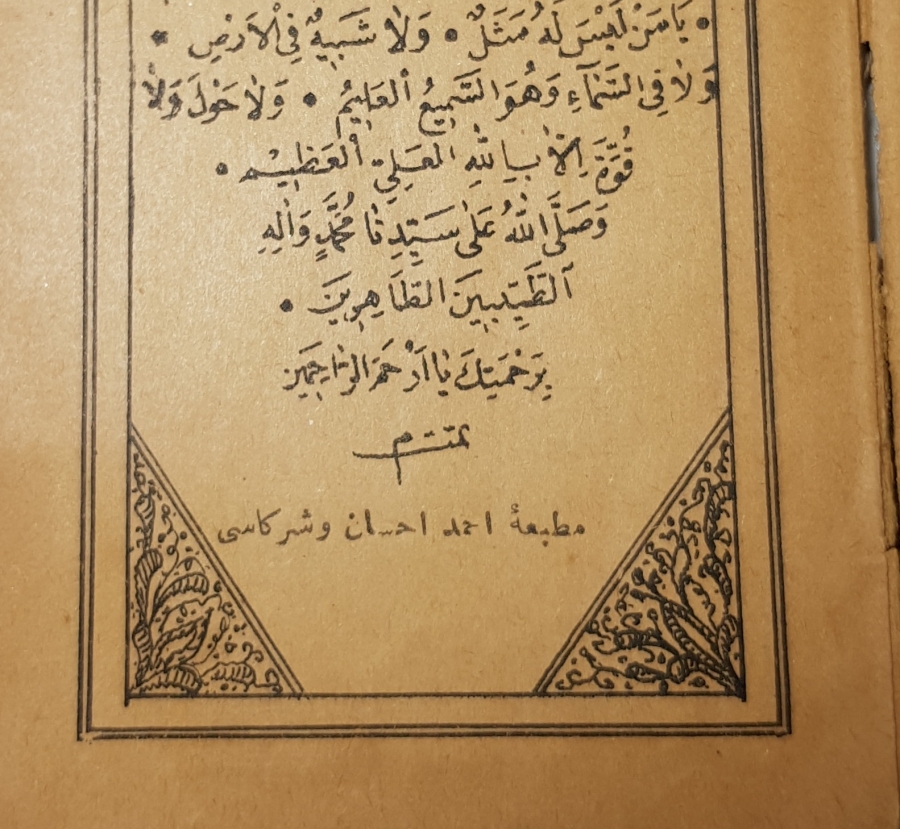 • يَا مَنْ لَيْسَ لَهُ مَثَلٌ • وَلَا شَبِيهٌ فِي الْاَرْضِ •
وَلَا فِي السَّمَآءِ وَهُوَ السَّمِيعُ الْعَلِيمُ • وَلَا حَوْلَ وَلَا
قُوَّةَ اِلَّا بِاللّٰهِ الْعَلِيِّ الْعَظِيْمِ •
وَصَلَّى اللّٰهُ عَلٰى سَيِّدِنَا مُحَمَّدٍ وَاٰلِهِ
اَلطَّيِّبِينَ الطَّاهِرِينَ •
بِرَحْمَتِكَ يَا اَرْحَمَ الرَّاحِمِينَ
تمت م
مطبعهٔ احمد احسان وشركاسی